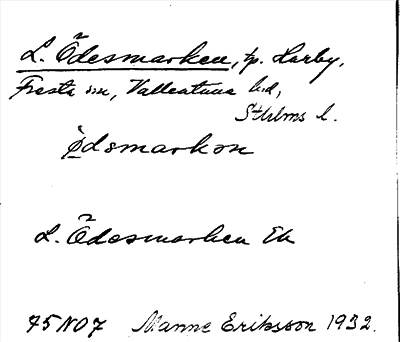 L. Ödesmarken, tp. Harby,
Fresta sn, Vallentuna hd,
Sthlms l.
ö̀dsmarkɷn
L. Ödesmarken Ek
75 NO7 Manne Eriksson 1932.